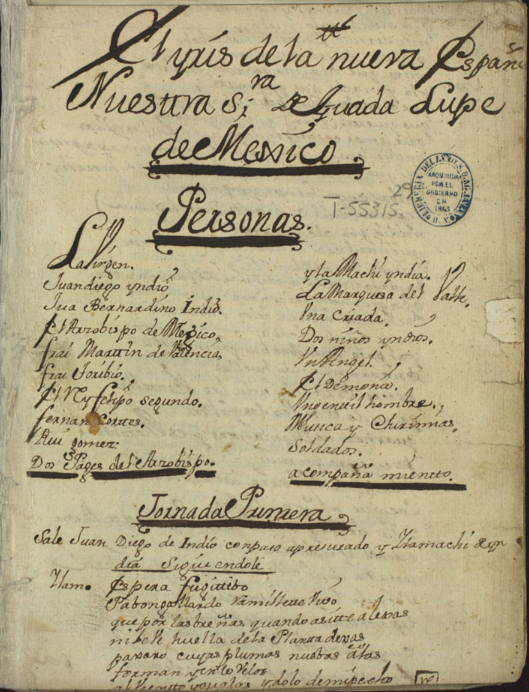 El yris de la nueva España
Nuestra S.ra de Guada Lupe
de Mexico
Personas.
T-55315
29
La Virgen.
Juan diego yndio
Jua Bernardino Indio.
El Arzobispo de Mexico,
frai Martin de Valencia,
frai Toribio.
El Rey felipo segundo.
fernan Cortes.
Rui gomez.
Dos Pages de el Arzobispo.
ytlaMachi yndia.
La Marquesa del Valle.
Una Criada.
Dos niños yndios.
Un Angel.
El Demonio.
Un gentil hombre.
Musica y Chirimias,
Soldados.
acompaña miento.
Jornada Primera
Sale Juan Diego de Indio con paso apresurado y Itamachi de yn
dia siguiendole
Ytam. Espera fugitibo
Pabon gallardo Ramillete vivo
que por las breñas quando
ni huella de la Planta dexas
paxaro cuyas plumas nuebas alas
forman
ydolo de mi pecho